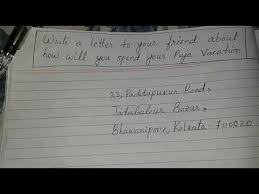 Write a letter to your friend about
how will you spend your Puja Vacation
23, Paddapukur Road,
Jadubabur Bazar,
Bhawanipore, Kolkata - 700020